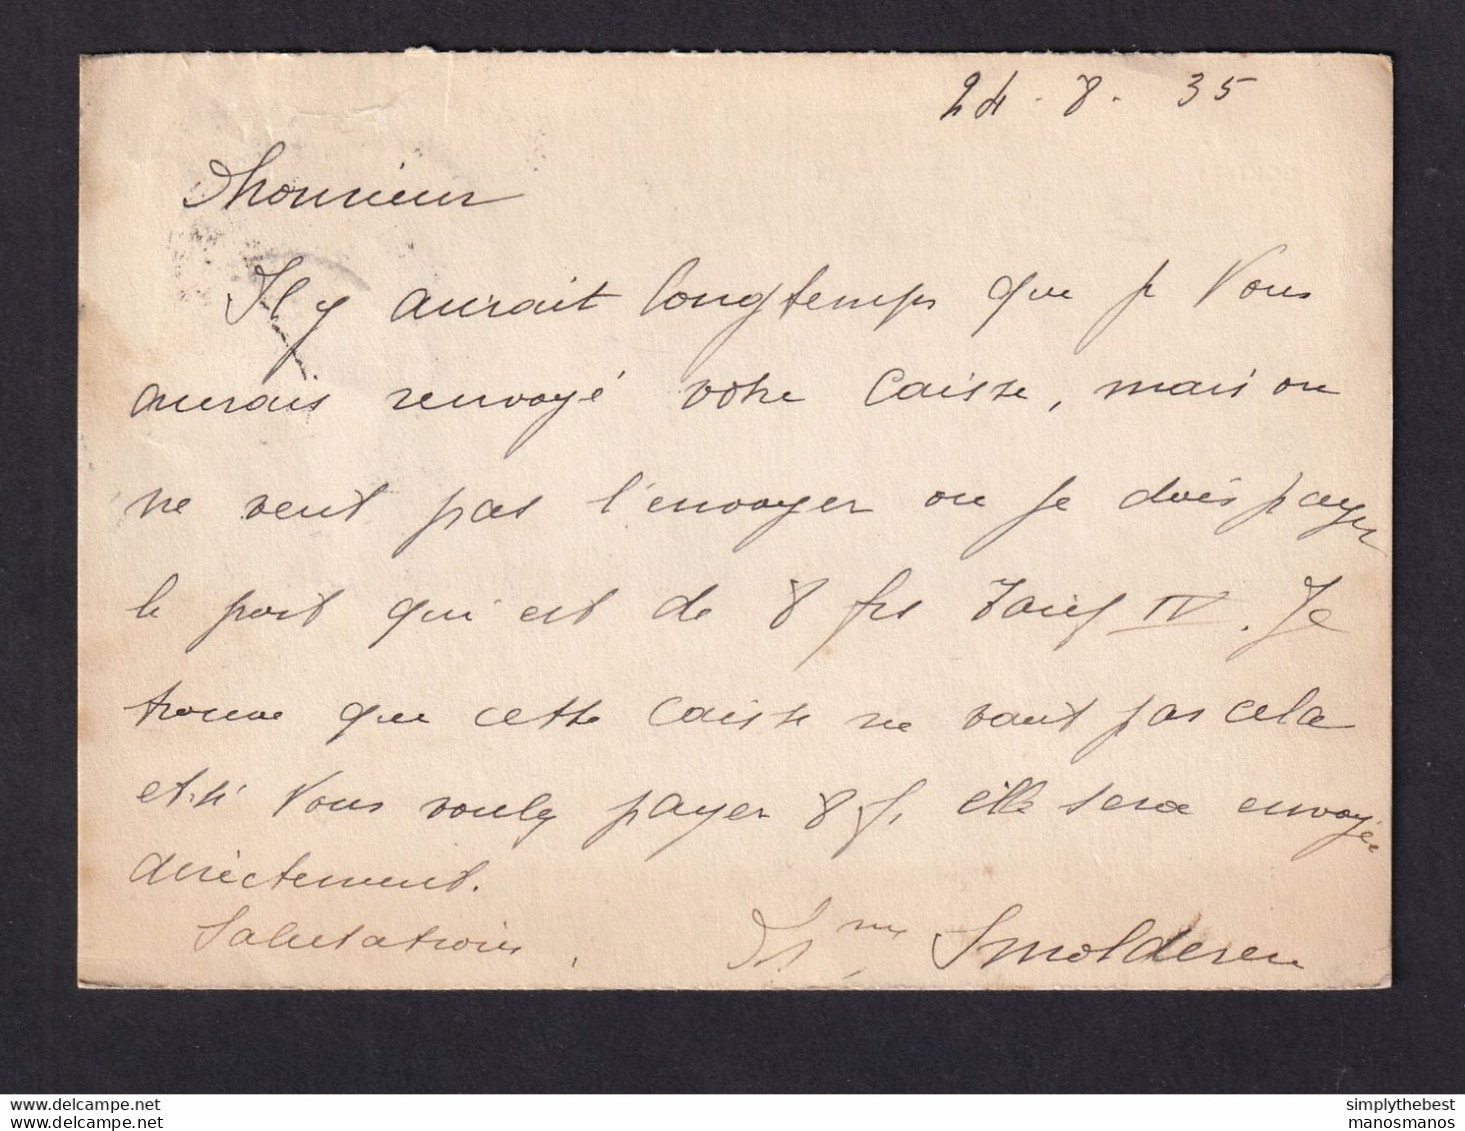 24 - 8 - 35
Monsieur
Il y aurait longtemps que je Vous
aurais renvoyé votre caisse, mais on
ne veut pas l'envoyer ou je dois payer
le port qui est de 8 frs Tarif IV. Je
trouve que cette caisse ne vaut pas cela
et si Vous voulez payer 8 f, elle sera envoyée
directement.
Salutations,
Mme Smolderen
delcampe.net
simplythebest
manosmanos